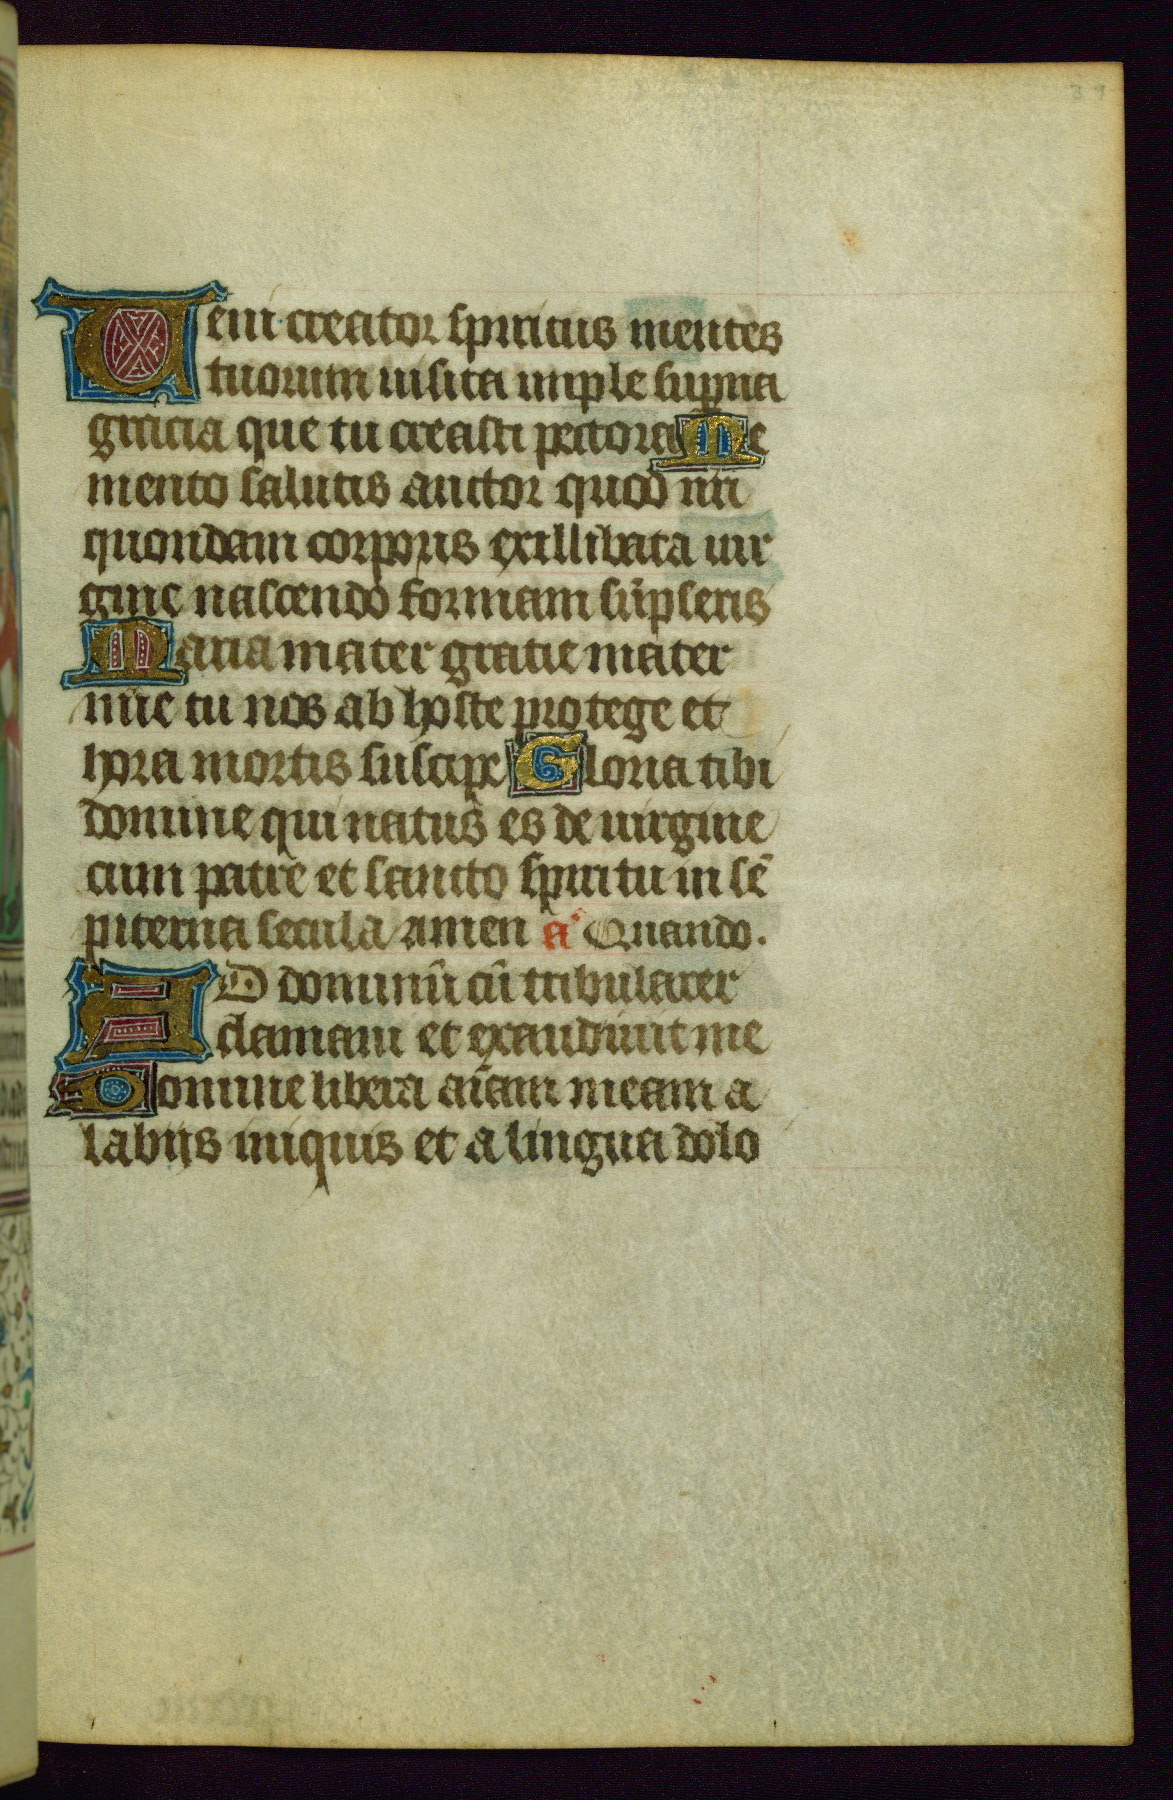 39
Veni creator spiritus mentes
tuorum uisita imple supͥna
gracia que tu creasti pectora Me
mento salutis auctor quod nri
quondam corporis exillibata uir
gine nascendo formam sūpseris
Maria mater gratie mater
mīe tu nos ab hoste protege et
hora mortis suscipe Gloria tibi
domine qui natus es de uirgine
cum patre et sancto spiritu in sē
piterna secula amen a͞ Quando.
AD dominū cū tribularer
clamaui et exaudiuit me
Domine libera aīam meam a
labijs iniquis et a lingua dolo